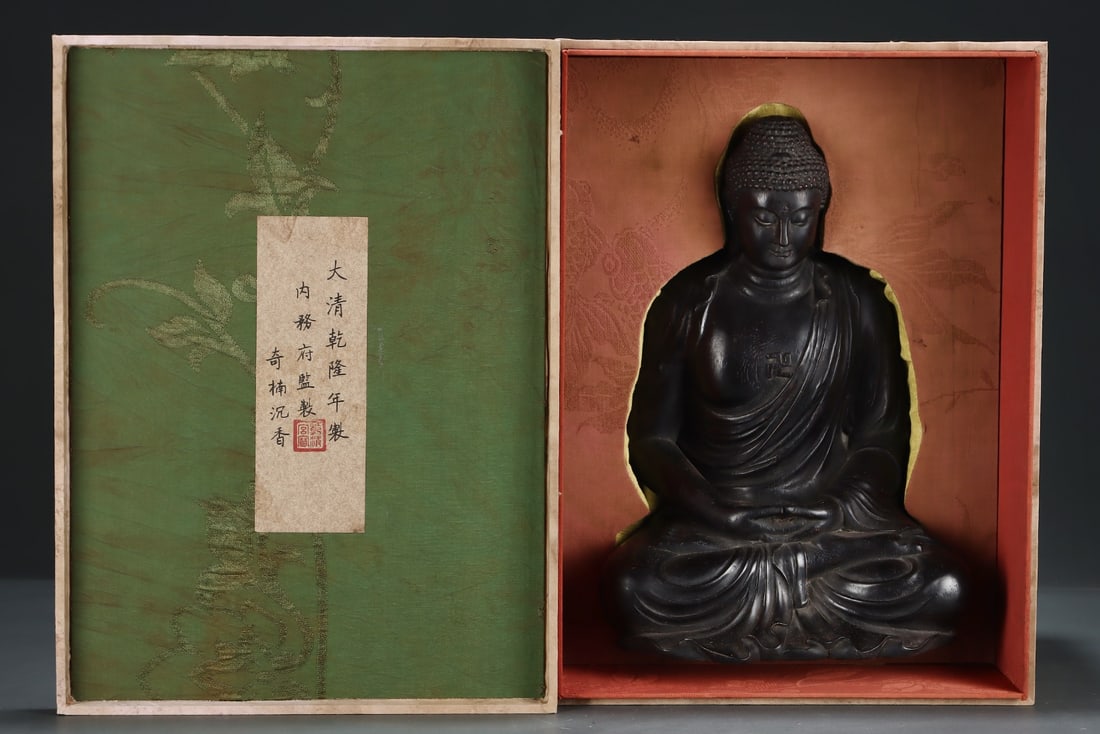 大清乾隆年製
内務府監製
奇楠沉香
卍